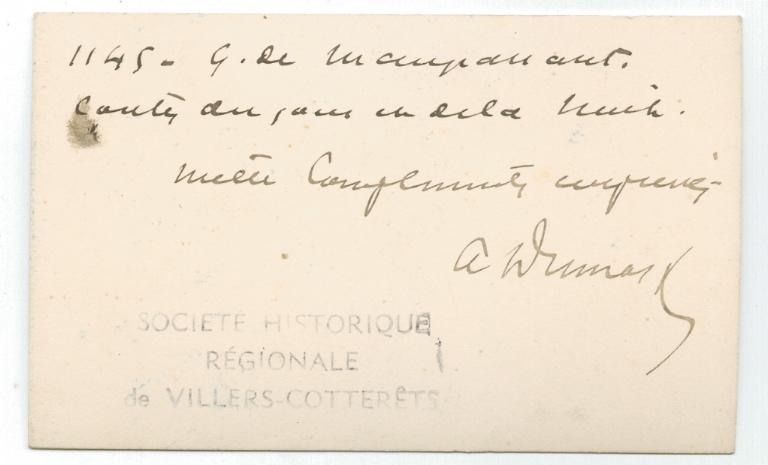 1145 - G. de Maupassant.
Contes du jour et de la Nuit.
Mille Compliments empressés
A Dumas f
SOCIETÉ HISTORIQUE
RÉGIONALE
de VILLERS-COTTERÊTS